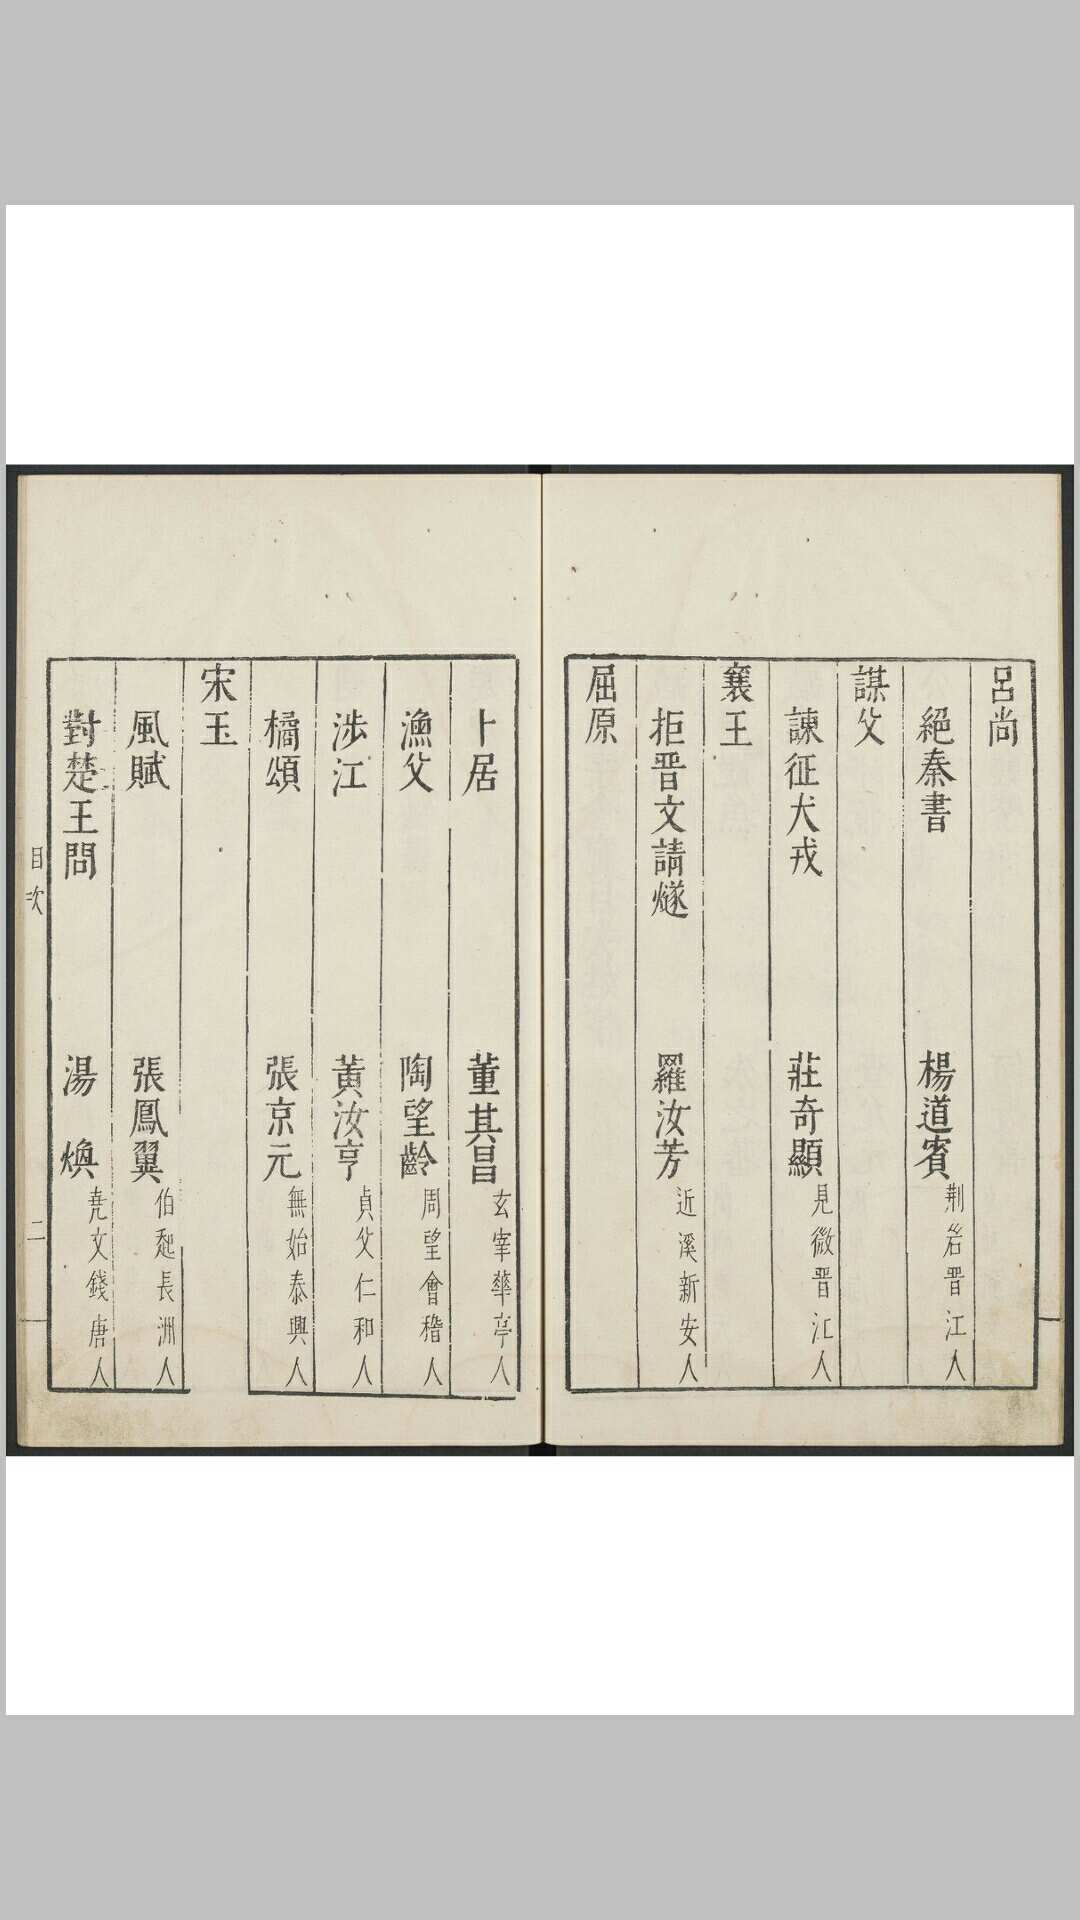 呂尚
絕秦書 楊道賓 荆岩晋江人
謀父
諫征犬戎 莊奇顯 見微晋江人
襄王
拒晋文請燧 羅汝芳 近溪新安人
屈原
卜居 董其昌 玄宰華亭人
漁父 陶望齡 周望會稽人
涉江 黃汝亨 貞父仁和人
橘頌 張京元 無始泰興人
宋玉
風賦 張鳳翼 伯起長洲人
對楚王問 湯煥 堯文錢唐人
目次 二